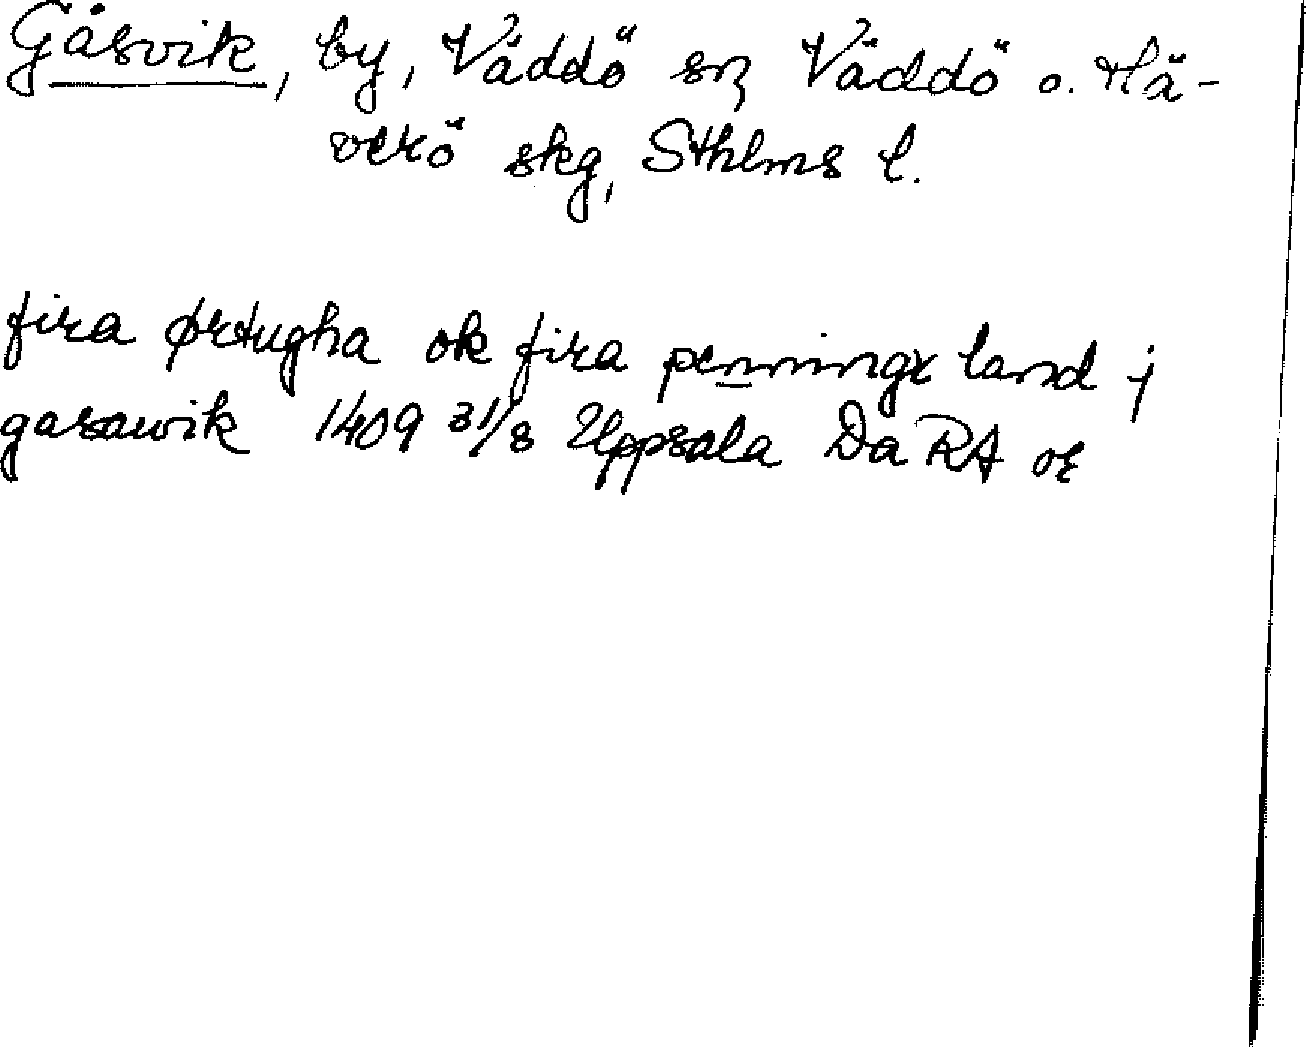 Gåsvik, by, Väddö sn, Väddö o. Hä-
verö skg, Sthlms l.
fira ørtugha ok fira penningx land j
gasawik 1409 31/8 Uppsala Da RA or